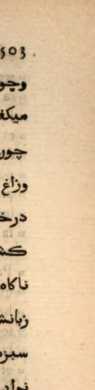 503
وچو
میکف
چون
وزاغ
درخ
کش
ناکاه
زبانش
سبزه